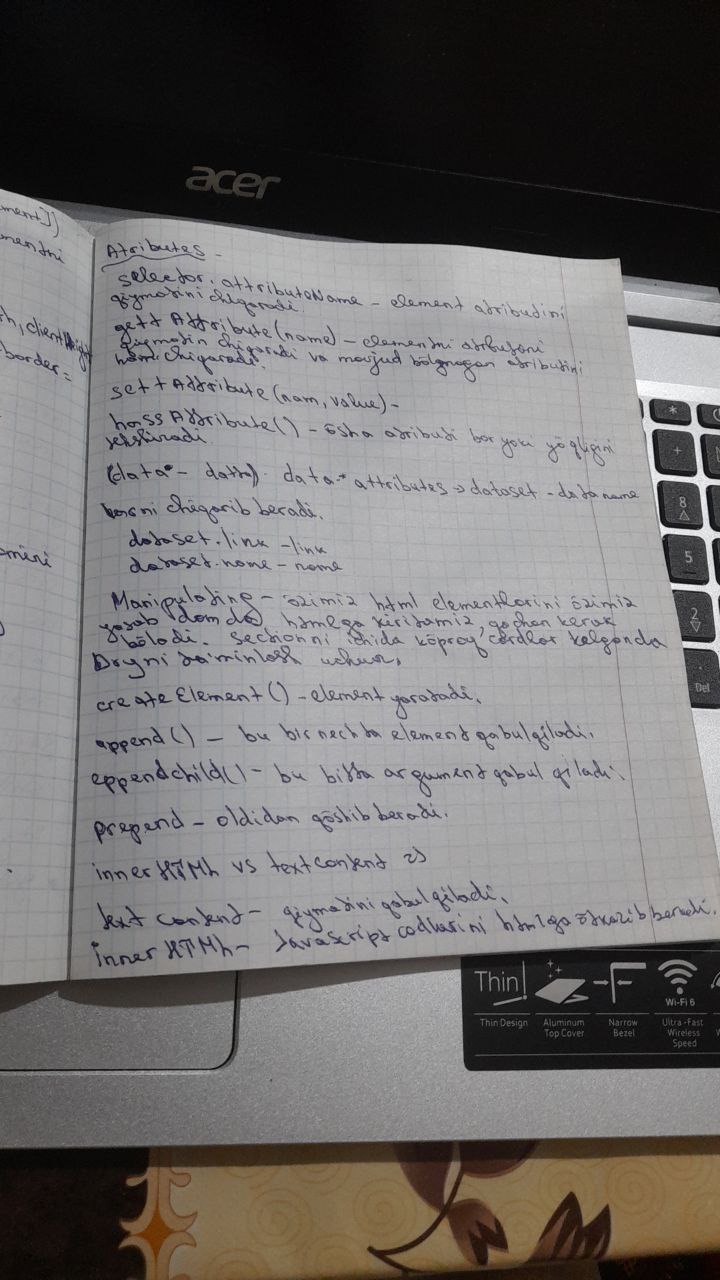 acer
ment]]
mentni
h, clientHeight
border =
omini
Atributes -
selector.attributeName - element atributini
qiymatini chiqaradi.
gett Attribute (name) - elementni atributini
qiymatin chiqaradi va mavjud bölmagan atributini
ham chiqaradi.
sett Attribute (nam, value) -
hass Attribute () - ösha atributi bor yoki yöqligini
tekshiradi.
(data* - datta). data-* attributes => dataset - data name
chiqarib beradi.
dataset.link - link
dataset.name - name
Manipulating - özimiz html elementlarini özimiz
yasab domda htmlga kiritamiz, qachon kerak
böladi. Sectionni ichida köproq cardlar kelganda
Dryni taiminlash uchun.
create Element () - element yaratadi.
append () - bu bir nechta element qabul qiladi.
eppendchild () - bu bitta argument qabul qiladi.
prepend - oldidan qöshib beradi.
inner HTMh vs textcontent =>
text content - qiymatini qabul qiladi.
inner HTMh - Javascript codlarini htmlga ötkazib beradi.
*
+
8
5
2
Del
Thin!
Wi-Fi 6
Thin Design
Aluminum
Top Cover
Narrow
Bezel
Ultra-Fast
Wireless
Speed